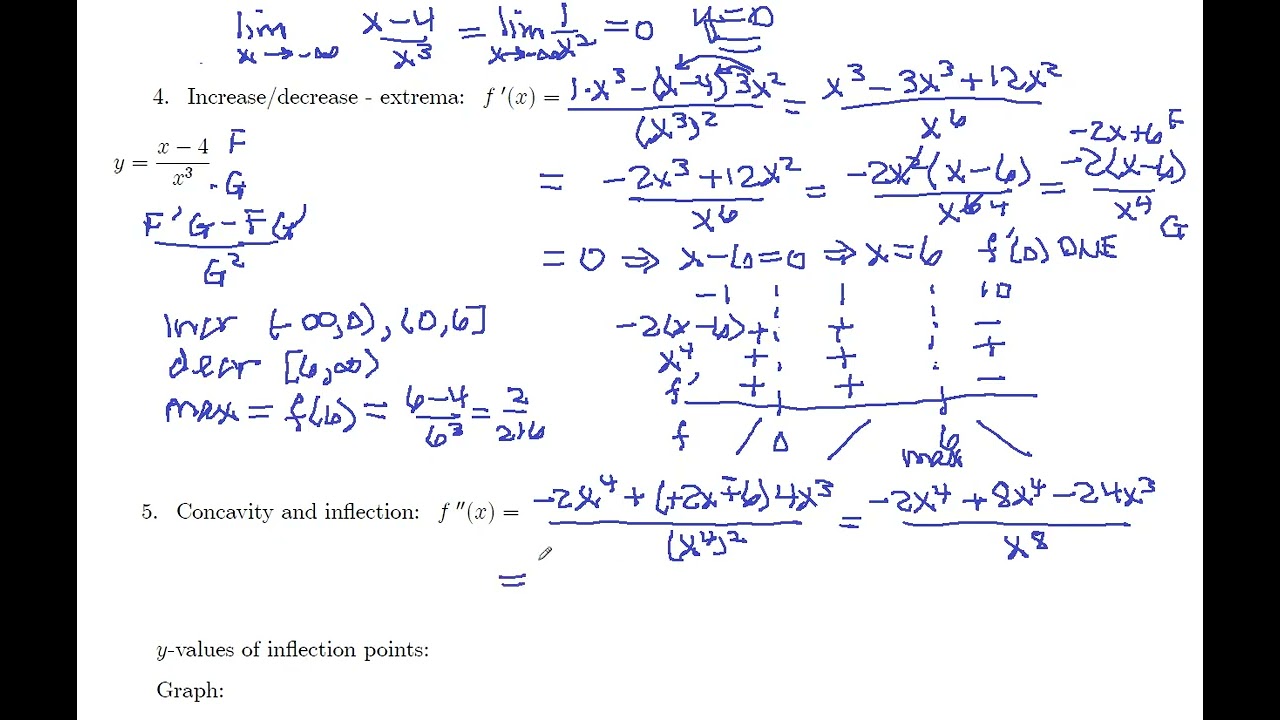 lim x→-∞ x-4/x³ = lim x→-∞ 1/x² = 0 y = 0
4. Increase/decrease - extrema: f ′(x) = 1·x³-(x-4)3x²/(x³)² = x³-3x³+12x²/x⁶
y = x − 4/x³ F G
= -2x³+12x²/x⁶ = -2x²(x-6)/x⁶ 4 = -2(x-6)/x⁴ -2x+6 F G
F'G-FG'/G²
= 0 ⇒ x-6=0 ⇒ x=6 f'(0) DNE
-1 1 10
incr (-∞,0), (0,6] -2(x-6) + + -
decr [6,∞) x⁴ + + +
f' + + -
max = f(6) = 6-4/6³ = 2/216
f 0 6
max
5. Concavity and inflection: f ″(x) = -2x⁴+(+2x-6)4x³/(x⁴)² = -2x⁴+8x⁴-24x³/x⁸
=
y-values of inflection points:
Graph: